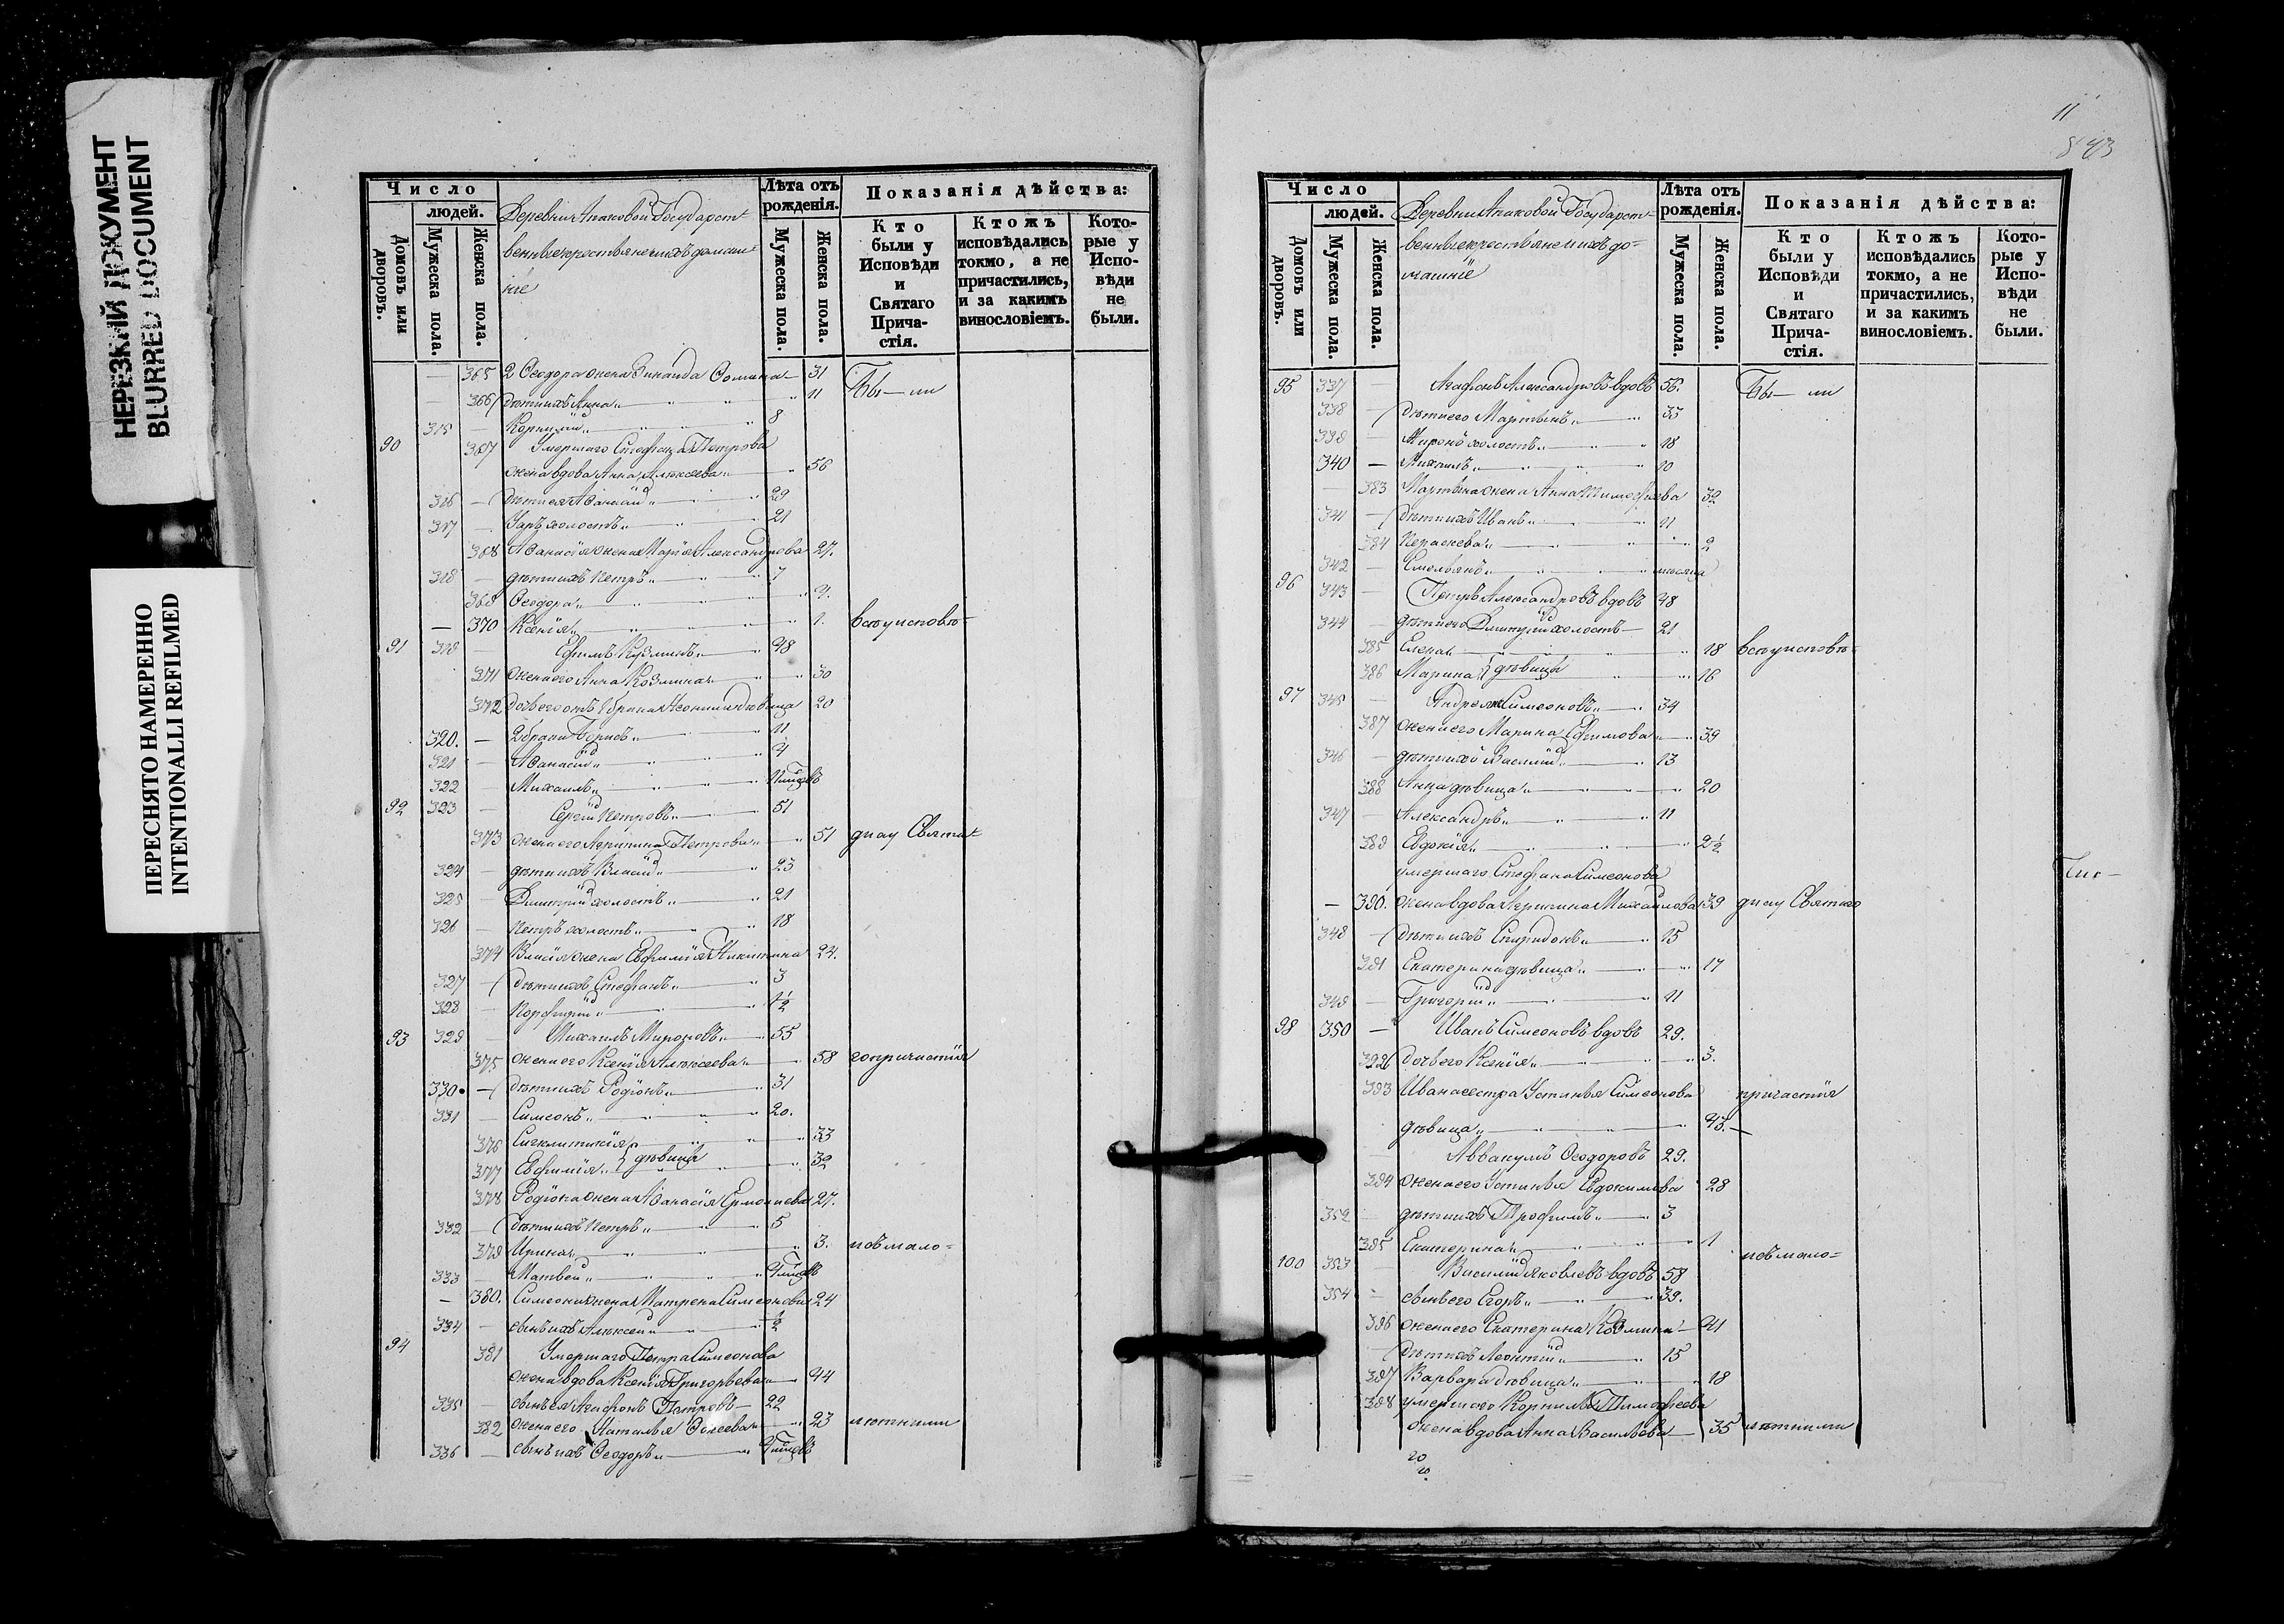 НЕРЕЗКИЙ ДОКУМЕНТ
BLURRED DOCUMENT
ПЕРЕСНЯТО НАМЕРЕННО
INTENTIONALLI REFILMED
Число
людей.
Домовъ или дворовъ.
Мужеска пола.
Женска пола.
Деревни Апаковой Государст-
венные крестьяне и ихъ домаш-
ніе
Лѣта отъ рожденія.
Мужеска пола.
Женска пола.
Показанія дѣйства:
Кто были у Исповѣди и Святаго Прича-стія.
Ктожъ исповѣдались токмо, а не причастились, и за какимъ винословіемъ.
Кото-рые у Испо-вѣди не были.
365 2 Ѳеодора жена Зинаида Ѳомина 31 Бы-ли
366 Дѣти ихъ Анна 11
315 Корнилий 8
90 367 Умершаго Стефана Петрова
жена вдова Анна Алексеева 56
316 Дѣти ея Аѳанасий 29
317 Уаръ холостъ 21
368 Аѳанасія жена Марія Александрова 27.
318 дѣти ихъ Петръ 7
369 Ѳеодора 4.
370 Ксенія 1. всеуисповѣ-
91 319 Ефимъ Козминъ 48
371 Жена его Анна Козмина 30
372 20
320. 2 брака Борисъ 11
321 Аѳанасий 4
322 Михаилъ
92 323 Сергий Петровъ 51
373 жена его Агрипина Петрова 51 ди и у Свята-
324 дѣти ихъ Власий 23
325 Димитрий холостъ 21
326 Петръ холостъ 18
374 Власія жена Евфимія Никитина 24.
327 Дѣти ихъ Стефанъ 3
328 Порфирий 1½
93 329 Михаилъ Мироновъ 55
375 жена его Ксенія Алексеева 58 гопричастія
330. Дѣти ихъ Родіонъ 31
331 Симеонъ 20.
376 Сигклитикія 33
377 Евфимія } дѣвицы 32
378 Родіона жена Аѳанасія Ермолаева 27.
332 Дѣти ихъ Петръ 5
379 Ирина 3. поъмало=
333 Матвей
380. Симеона жена Матрена Симеонова 24
334 сынъ ихъ Алексей ½
94 381 Умершаго Петра Симеонова
жена вдова Ксенія Григорьева 44
335 сынъ ея Агафонъ Петровъ 22
382 жена его Наталья 23 лѣтними
336 сынъ ихъ Ѳеодоръ
11
843
Число
людей.
Домовъ или дворовъ.
Мужеска пола.
Женска пола.
Деревни Апаковой Государст-
венные крестьяне и ихъ до=
машніе
Лѣта отъ рожденія.
Мужеска пола.
Женска пола.
Показанія дѣйства:
Кто были у Исповѣди и Святаго Прича-стія.
Ктожъ исповѣдались токмо, а не причастились, и за какимъ винословіемъ.
Кото-рые у Испо-вѣди не были.
95 337 Агафонъ Александровъ вдовъ 56. Бы-ли
338 Дѣти его Мартынъ 33
339 Миронъ холостъ 18
340 Михаилъ 10
383 Мартына жена Анна Тимофеева 32
341 Дѣти ихъ Иванъ 11
384 Параскева 2
342 Емельянъ месяца
96 343 Петръ Александровъ вдовъ 48
344 дѣти его Димитрий холостъ 21
385 Елена 18 всеуисповѣ-
386 Марина } дѣвицы 16
97 345 Андрей Симеоновъ 34
387 жена его Марина Ефимова 39
346 дѣти ихъ Василий 13
388 Анна дѣвица 20
347 Александръ 11
389 Евдокія 2½
умершаго Стефана Симеонова
390. жена вдова Агрипина Михайлова 39 ди и у Святаго
348 Дѣти ихъ Спиридонъ 15
391 Екатерина дѣвица 17
349 Григорий 11
98 350 Иванъ Симеоновъ вдовъ 29.
392 дочь его Ксенія 3.
393 Ивана сестра Устинья Симеонова причастія
дѣвица 43.
Аввакумъ Ѳеодоровъ 29.
394 жена его Устинья Евдокимова 28
352 дѣти ихъ Трофимъ 3
395 Екатерина 1
100 353 Василий Яковлевъ вдовъ 58 поъмало=
354 сынъ его Егоръ 39.
396 жена его Екатерина Козмина 41
Дѣти ихъ Леонтий 15
397 Варвара дѣвица 18
398 умершаго Корнилія Тимофеева
жена вдова Анна Васильева 35 лѣтними